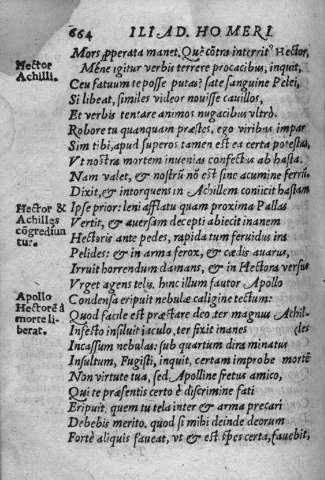 664 ILIAD. HOMERI
Mors pperata manet. Quē cōtra interrit⁹ Hector,
Hector Achilli.
Mene igitur verbis terrere procacibus, inquit,
Ceu fatuum te posse putas? sate sanguine Pelei,
Si libeat, similes videor nouisse cauillos,
Et verbis tentare animos nugacibus vltrò.
Robore tu quanquam præstes, ego viribus impar
Sim tibi, apud superos tamen est ea certa potestas,
Vt nostra mortem inuenias confectus ab hasta.
Nam valet, & nostrū nō est sine acumine ferrū.
Dixit, & intorquens in Achillem coniicit hastam
Hector & Achilles cōgrediuntur.
Ipse prior: leni afflatu quam proxima Pallas
Vertit, & auersam decepti abiecit inanem
Hectoris ante pedes, rapida tum feruidus ira
Pelides: & in arma ferox, & cædis auarus,
Irruit horrendum damans, & in Hectora versus
Vrget agens telis, hinc illum fautor Apollo
Apollo Hectorē à morte liberat.
Condensa eripuit nebulæ caligine tectum:
Quod facile est præstare deo ter magnus Achilles
Infesto insiluit iaculo, ter fixit inanes
Incassum nebulas: sub quartum dira minatus
Insultum, Fugisti, inquit, certam improbe mortē
Non virtute tua, sed Apolline fretus amico,
Qui te præsentis certo è discrimine fati
Eripuit, quem tu tela inter & arma precari
Debebis merito, quod si mihi deinde deorum
Fortè aliquis faueat, vt & est spes certa, fauebit,